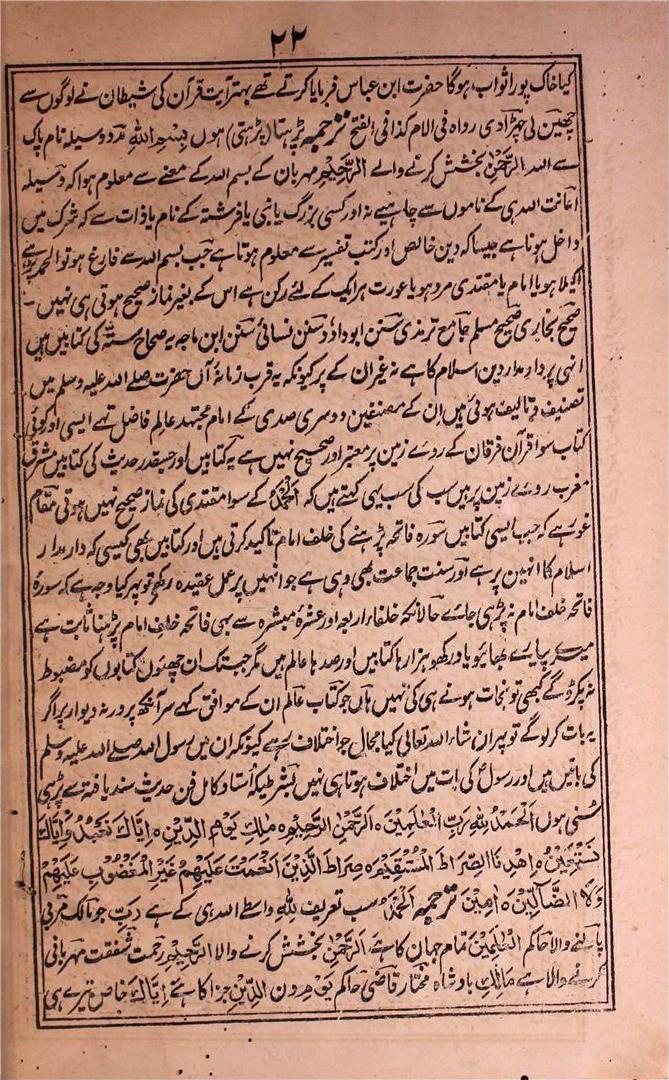 ۲۲
کیا خاک پورا ثواب ہوگا حضرت ابن عباس فرمایا کرتے تھے بہتر آیت قرآن کی شیطان نے لوگوں سے
چھین لی چپڑا دی رواہ فی الام کذا فی الفتح ترجمہ پڑہتا (پڑہتی) ہوں بِسْمِ اللهِ مدد وسیلہ نام پاک
سے اللہ الرَّحْمٰنِ بخشش کرنے والے الرَّحِیْمِ مہربان کے بسم اللہ کے معنے سے معلوم ہوا کہ وسیلہ
اعانت اللہ ہی کے ناموں سے چاہیے نہ اور کسی بزرگ یا نبی یا فرشتہ کے نام یا ذات سے کہ شرک میں
داخل ہونا ہے جیسا کہ دین خالص اور کتب تفسیر سے معلوم ہوتا ہے جب بسم اللہ سے فارغ ہو تو الحمد پڑہے
اکیلا ہو یا امام یا مقتدی مرد ہو یا عورت ہر ایک کے لئے رکن ہے اس کے بغیر نماز صحیح ہوتی ہی نہیں -
صحیح بخاری صحیح مسلم جامع ترمذی سنن ابو داؤد سنن نسائی سنن ابن ماجہ یہ صحاح ستہ کی کتابیں ہیں
انہی پر دار مدار دین اسلام کا ہے نہ غیر ان کے پر کیونکہ یہ قرب زمانہ آں حضرت صلے اللہ علیہ وسلم میں
تصنیف و تالیف ہوئی ہیں ان کے مصنفین دوسری صدی کے امام مجتہد عالم فاضل تھے ایسی اور کوئی
کتاب سوا قرآن فرقان کے روے زمین پر معتبر اور صحیح نہیں ہے یہ کتابیں اور جسقدر حدیث کی کتابیں مشرق
مغرب روے زمین پر ہیں سب کی سب یہی کہتے ہیں کہ اَلْحَمْدُ کے سوا مقتدی کی نماز صحیح نہیں ہوتی مقام
غور ہے کہ جب ایسی کتابیں سورہ فاتحہ پڑہنے کی خلف امام تاکید کرتی ہیں اور کتابیں بھی کیسی کہ دار مدار
اسلام کا انہیں پر ہے اور سنت جماعت بھی وہی ہے جو انہیں پر عمل عقیدہ رکھے تو پہر کیا وجہ ہے کہ سورۂ
فاتحہ خلف امام نہ پڑہی جائے حالانکہ خلفاء اربعہ اور عشرۂ مبشرہ سے بہی فاتحہ خلف امام پڑہنا ثابت ہے
میرے پیارے بھائیو یاد رکھو ہزارہا کتابیں اور صدہا عالم ہیں مگر جب تک ان چھئوں کتابوں کو مضبوط
نہ پکڑو گے کبھی تو نجات ہونے ہی کی نہیں ہاں جو کتاب عالم ان کے موافق کہے سر آنکھ پر ورنہ دیوار پر اگر
یہ بات کر لو گے تو پہر ان شاء اللہ تعالی کیا مجال جو اختلاف رہے کیونکہ ان میں رسول اللہ صلے اللہ علیہ وسلم
کی باتیں ہیں اور رسول کی بات میں اختلاف ہوتا ہی نہیں بشرطیکہ اُستاد کامل فن حدیث سند یافتہ سے پڑہی
سُنی ہوں اَلْحَمْدُ لِلّٰهِ رَبِّ الْعٰلَمِیْنَ ہ الرَّحْمٰنِ الرَّحِیْمِ ہ مٰلِكِ یَوْمِ الدِّیْنِ ہ اِیَّاكَ نَعْبُدُ وَاِیَّاكَ
نَسْتَعِیْنُ ہ اِهْدِنَا الصِّرَاطَ الْمُسْتَقِیْمَ ہ صِرَاطَ الَّذِیْنَ اَنْعَمْتَ عَلَیْهِمْ غَیْرِ الْمَغْضُوْبِ عَلَیْهِمْ
وَلَا الضَّآلِّیْنَ ہ اٰمِیْنَ ترجمہ اَلْحَمْدُ سب تعریف لِلّٰهِ واسطے اللہ ہی کے ہے رَبِّ جو مالک مربی
پالنے والا حاکم الْعٰلَمِیْنَ تمام جہان کا ہے الرَّحْمٰنِ بخشش کرنے والا الرَّحِیْمِ رحمت شفقت مہربانی
کرنے والا ہے مَالِكِ بادشاہ مختار قاضی حاکم یَوْمِ دن الدِّیْنِ جزا کا ہے اِیَّاكَ خاص تیرے ہی